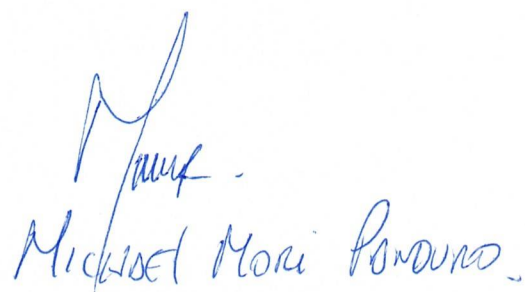 Michael Mori Panduro.